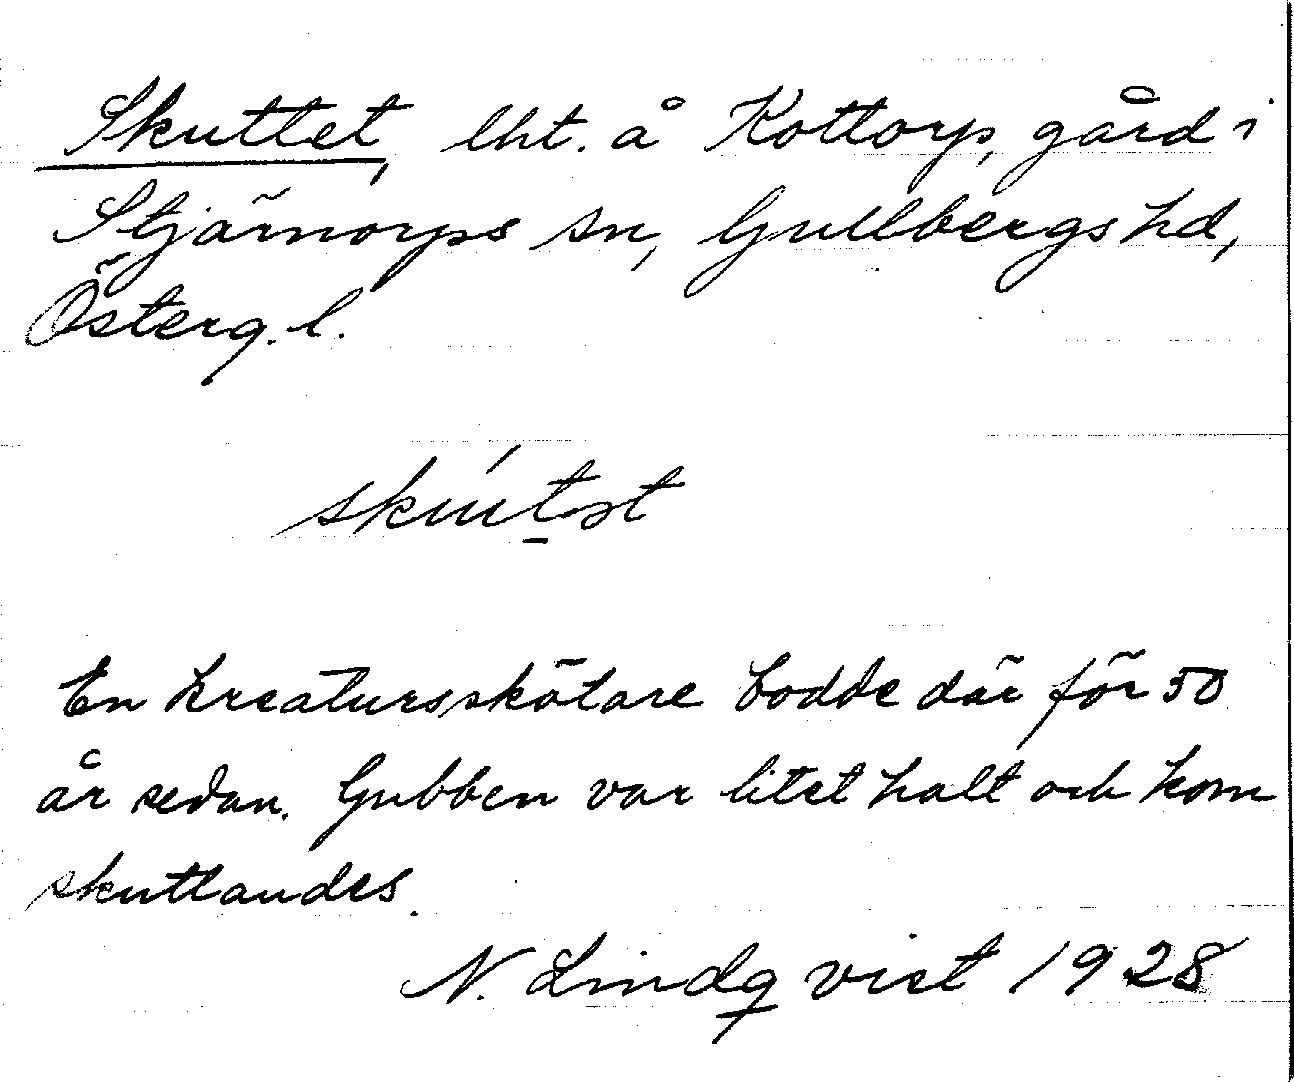 Skuttet, lht. å Kottorp, gård i
Stjärnorps sn, Gullbergs hd,
Österg. l.
En kreatursskötare bodde där för 50
år sedan. Gubben var litet halt och kom
skuttandes.
N. Lindqvist 1928